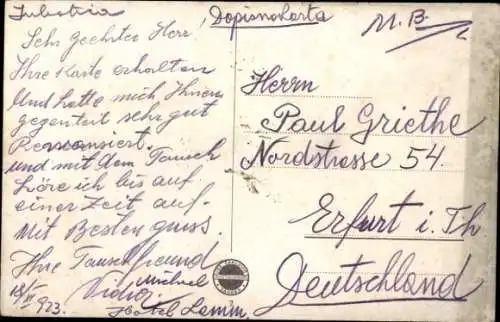 Dopisnakarta
M. B.
Sehr geehrter Herr
Ihre Karte erhalten
Und hatte mich Ihnen
gegenteil sehr gut
Revansiert.
und mit dem Tausch
höre ich bis auf
einer Zeit auf.
Mit Besten gruss.
Ihre Tauschfreund
Michael
Hotel Lamm.
Herrn
Paul Griethe
Nordstrasse 54.
Erfurt i. Th
Deutschland